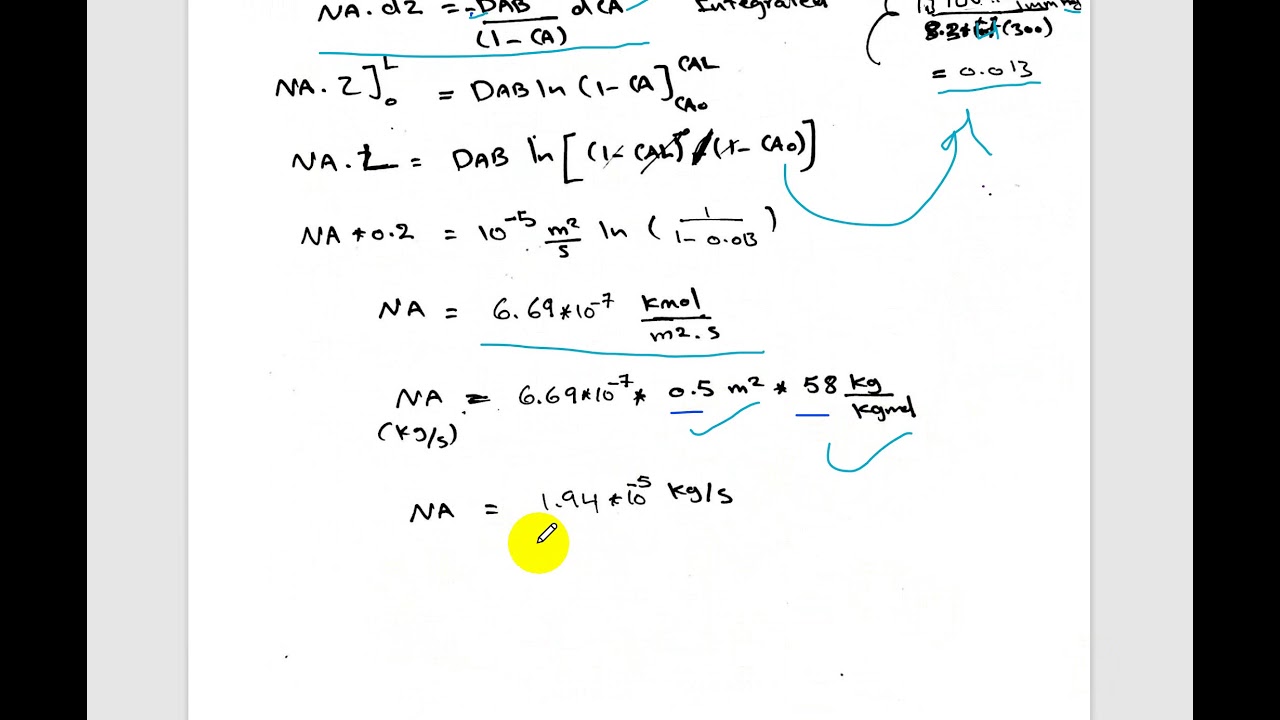 NA.dZ = -DAB dCA Integrated
(1-CA)
(300)
= 0.013
NA.Z]₀ᴸ = DAB ln(1-CA]
CAL
CA0
NA.L = DAB ln[(1-CAL) /(1-CA0)]
NA * 0.2 = 10⁻⁵ m²/s ln(1/(1-0.013))
NA = 6.69*10⁻⁷ kmol/m².s
NA = 6.69*10⁻⁷ * 0.5 m² * 58 kg/kgmol
(kg/s)
NA = 1.94*10⁻⁵ kg/s